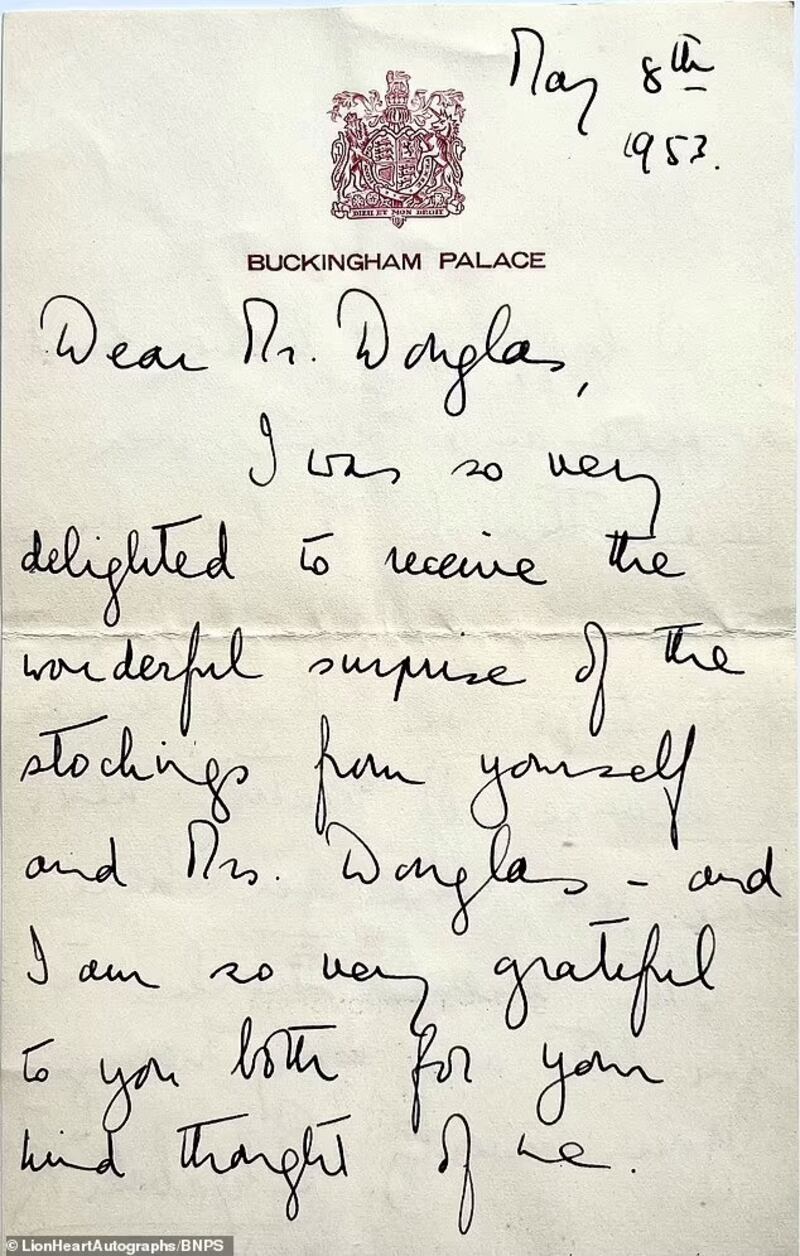 May 8th
1953.
DIEU ET MON DROIT
BUCKINGHAM PALACE
Dear Mr. Douglas,
I was so very
delighted to receive the
wonderful surprise of the
stockings from yourself
and Mrs. Douglas - and
I am so very grateful
to you both for your
kind thought of me.
© LionHeartAutographs/BNPS